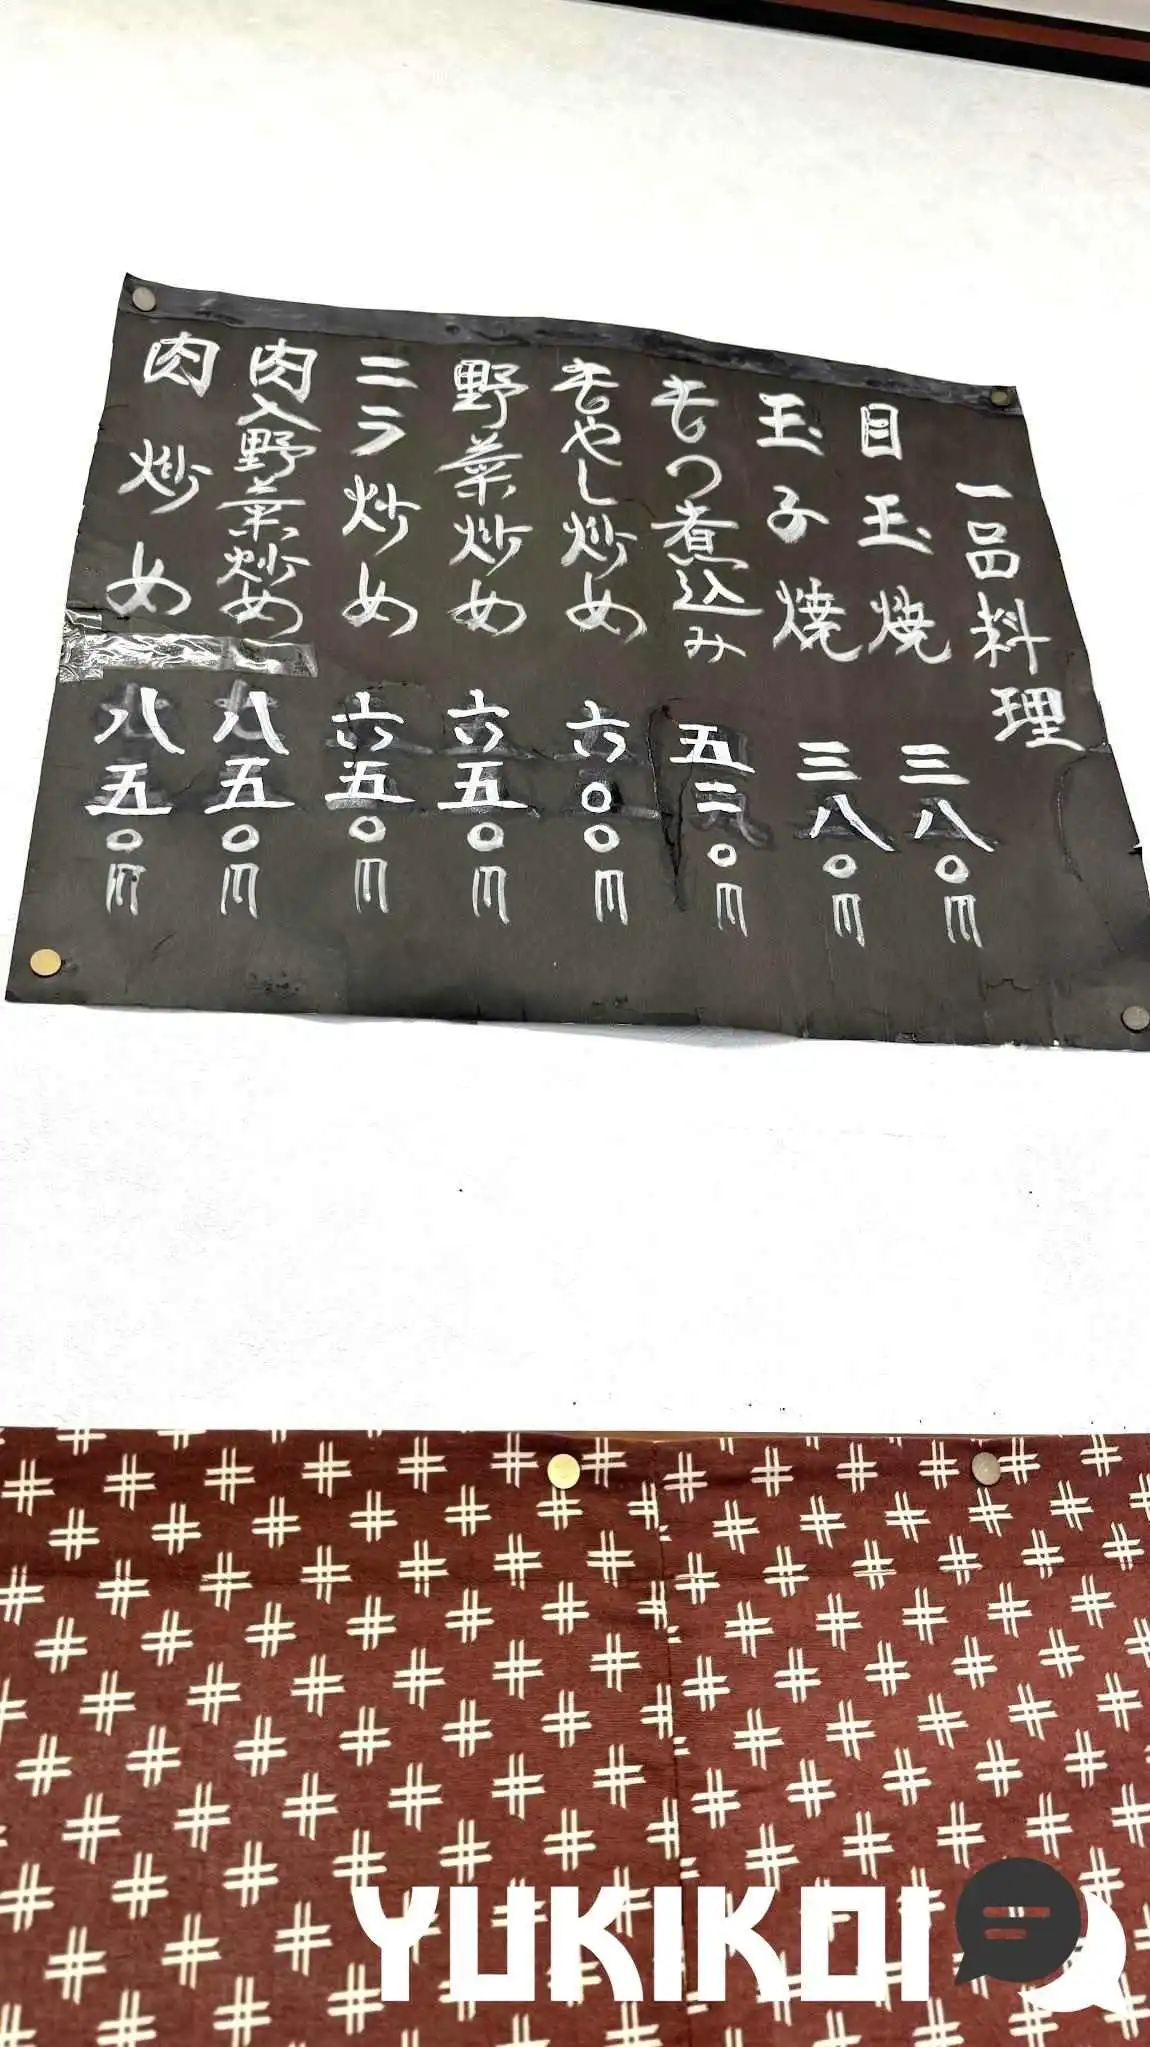 一品料理
目玉焼 三八〇円
玉子焼 三八〇円
もつ煮込み 五二〇円
もやし炒め 六〇〇円
野菜炒め 六五〇円
ニラ炒め 六五〇円
肉入野菜炒め 八五〇円
肉炒め 八五〇円
YUKIKOI